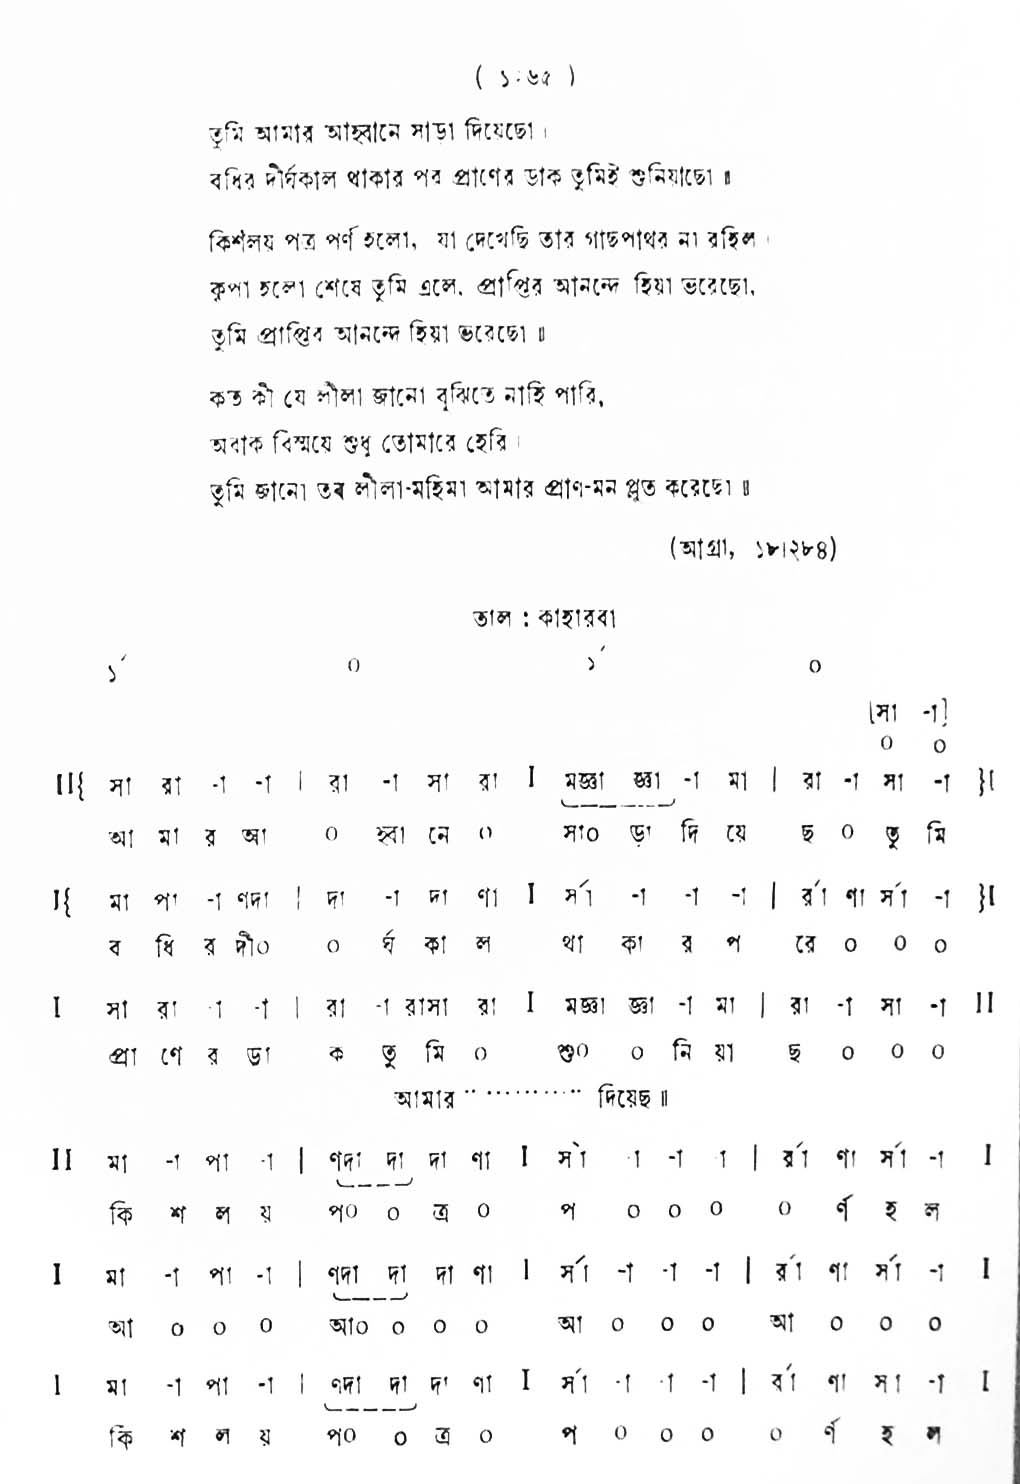 ( ১·৬৫ )
তুমি আমার আহ্বানে সাড়া দিয়েছো।
বধির দীর্ঘকাল থাকার পর প্রাণের ডাক তুমিই শুনিয়াছো॥
কিশলয় পত্র পর্ণ হলো, যা দেখেছি তার গাছপাথর না রহিল।
কৃপা হলো শেষে তুমি এলে, প্রাপ্তির আনন্দে হিয়া ভরেছো,
তুমি প্রাপ্তির আনন্দে হিয়া ভরেছো॥
কত কী যে লীলা জানো বুঝিতে নাহি পারি,
অবাক বিস্ময়ে শুধু তোমারে হেরি।
তুমি জানো তব লীলা-মহিমা আমার প্রাণ-মন প্লুত করেছো॥
(আগ্রা, ১৮।২৮৪)
তাল : কাহারবা
১´ ০ ১´ ০
[সা -া]
০ ০
II{ সা রা -া -া | রা -া সা রা I মজ্ঞা জ্ঞা -া মা | রা -া সা -া }I
আ মা র আ ০ হ্বা নে ০ সা০ ড়া দি য়ে ছ ০ তু মি
I{ মা পা -া ণদা | দা -া দা ণা I র্সা -া -া -া | র্রা ণা র্সা -া }I
ব ধি র দী০ ০ র্ঘ কা ল থা কা র প রে ০ ০ ০
I সা রা -া -া | রা -া রাসা রা I মজ্ঞা জ্ঞা -া মা | রা -া সা -া II
প্রা ণে র ডা ক তু মি ০ শু০ ০ নি য়া ছ ০ ০ ০
আমার ·············· দিয়েছ॥
II মা -া পা -া | ণদা দা দা ণা I র্সা -া -া -া | র্রা ণা র্সা -া I
কি শ ল য় প০ ০ ত্র ০ প ০ ০ ০ ০ র্ণ হ ল
I মা -া পা -া | ণদা দা দা ণা I র্সা -া -া -া | র্রা ণা র্সা -া I
আ ০ ০ ০ আ০ ০ ০ ০ আ ০ ০ ০ আ ০ ০ ০
I মা -া পা -া | ণদা দা দা ণা I র্সা -া -া -া | র্রা ণা সা -া I
কি শ ল য় প০ ০ ত্র ০ প ০ ০ ০ ০ র্ণ হ ল